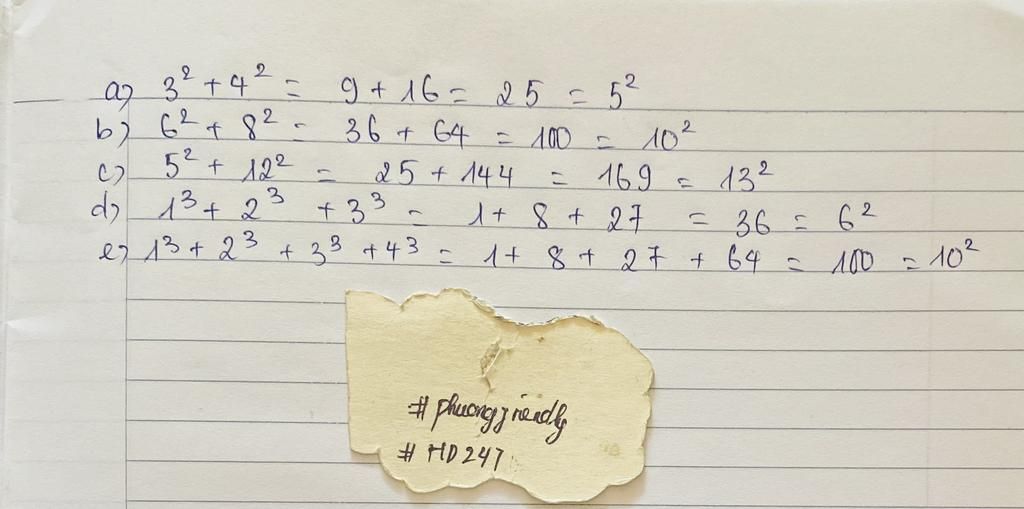 a) 3² + 4² = 9 + 16 = 25 = 5²
b) 6² + 8² = 36 + 64 = 100 = 10²
c) 5² + 12² = 25 + 144 = 169 = 13²
d) 1³ + 2³ + 3³ = 1 + 8 + 27 = 36 = 6²
e) 1³ + 2³ + 3³ + 4³ = 1 + 8 + 27 + 64 = 100 = 10²
# phuongfriendly
# HD247